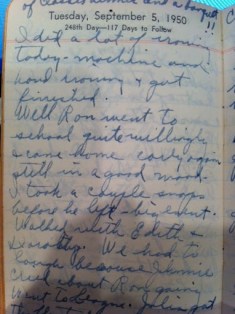 of classes dinner and a
Tuesday, September 5, 1950
248th Day—117 Days to Follow
I did a lot of ironing
today - machine and
hand ironing & got
finished.
Well Ron went to
school quite willingly
& came home early again
still in a good mood.
I took a couple snaps
before he left - big event.
Walked with Edith &
Dorothy. We had to
because
cried about Ron going
went to